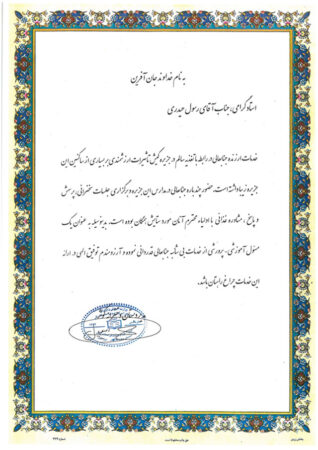 به نام خداوند جان آفرین
استاد گرامی، جناب آقای رسول حیدری
خدمات ارزنده جنابعالی در رابطه با تغذیه سالم در جزیره کیش تاثیرات ارزشمندی بر بسیاری از ساکنین این
جزیره زیبا داشته است. حضور چندباره جنابعالی در مدارس این جزیره و برگزاری جلسات سخنرانی، پرسش
و پاسخ، مشاوره غذائی با اولیاء محترم آنان مورد ستایش همگان بوده است. بدینوسیله به عنوان یک
مسئول آموزشی- پرورشی از خدمات بی شائبه جنابعالی قدردانی نموده و آرزومندم توفیق الهی در ارائه
این خدمات چراغ راهتان باشد.